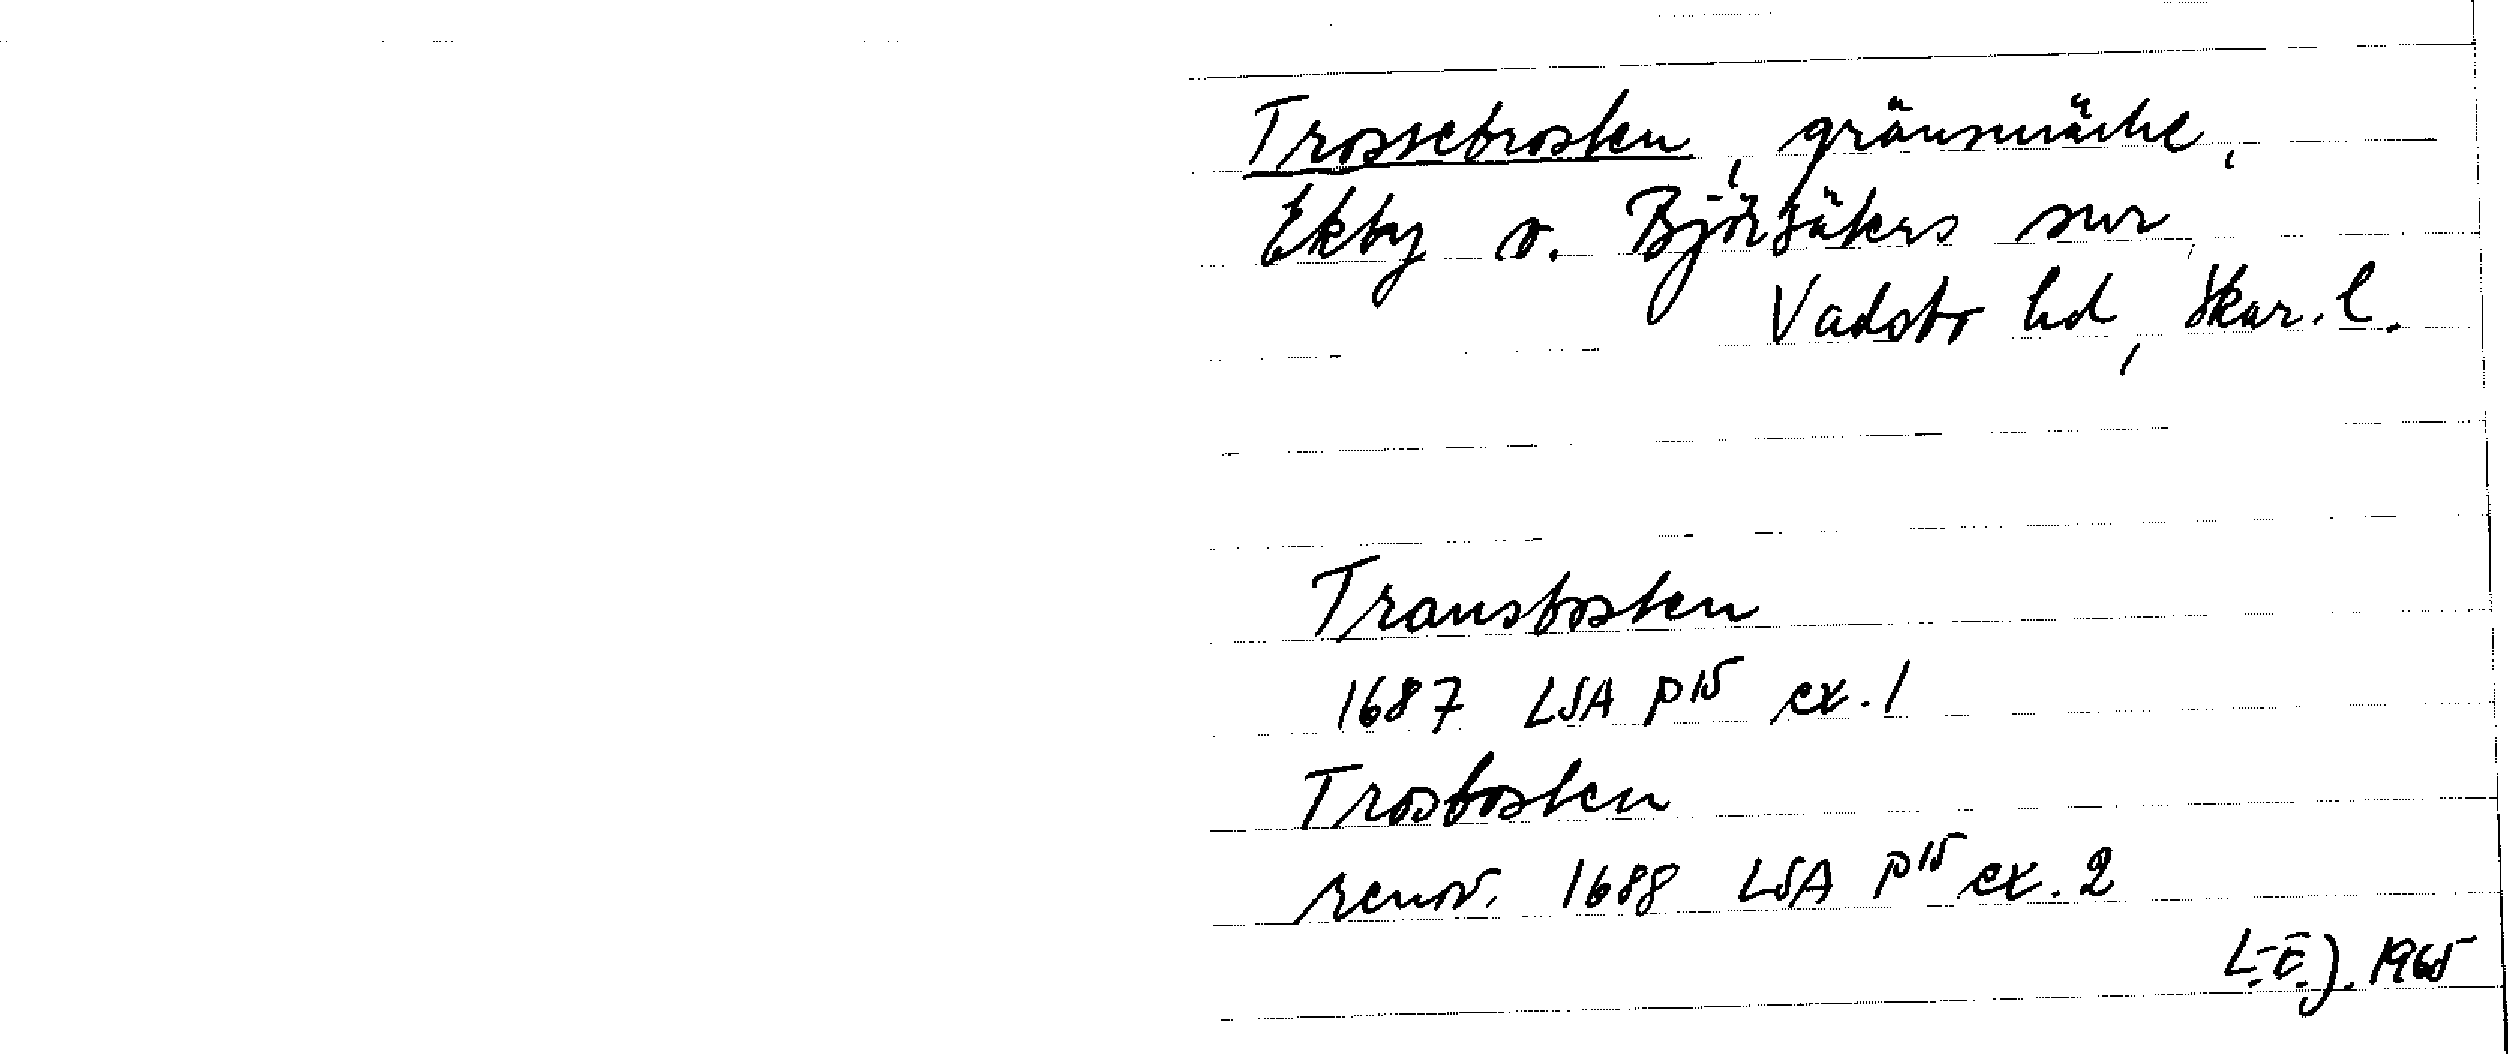 Trossebrosten, gränsmärke,
Ekby o. Björsäters snr
Vadsbo hd, Skar. l.
Transbosten
1687 LSA P15 ex. 1
Trosbosten
renov. 1688 LSA P15 ex. 2
L.E.J. 1965